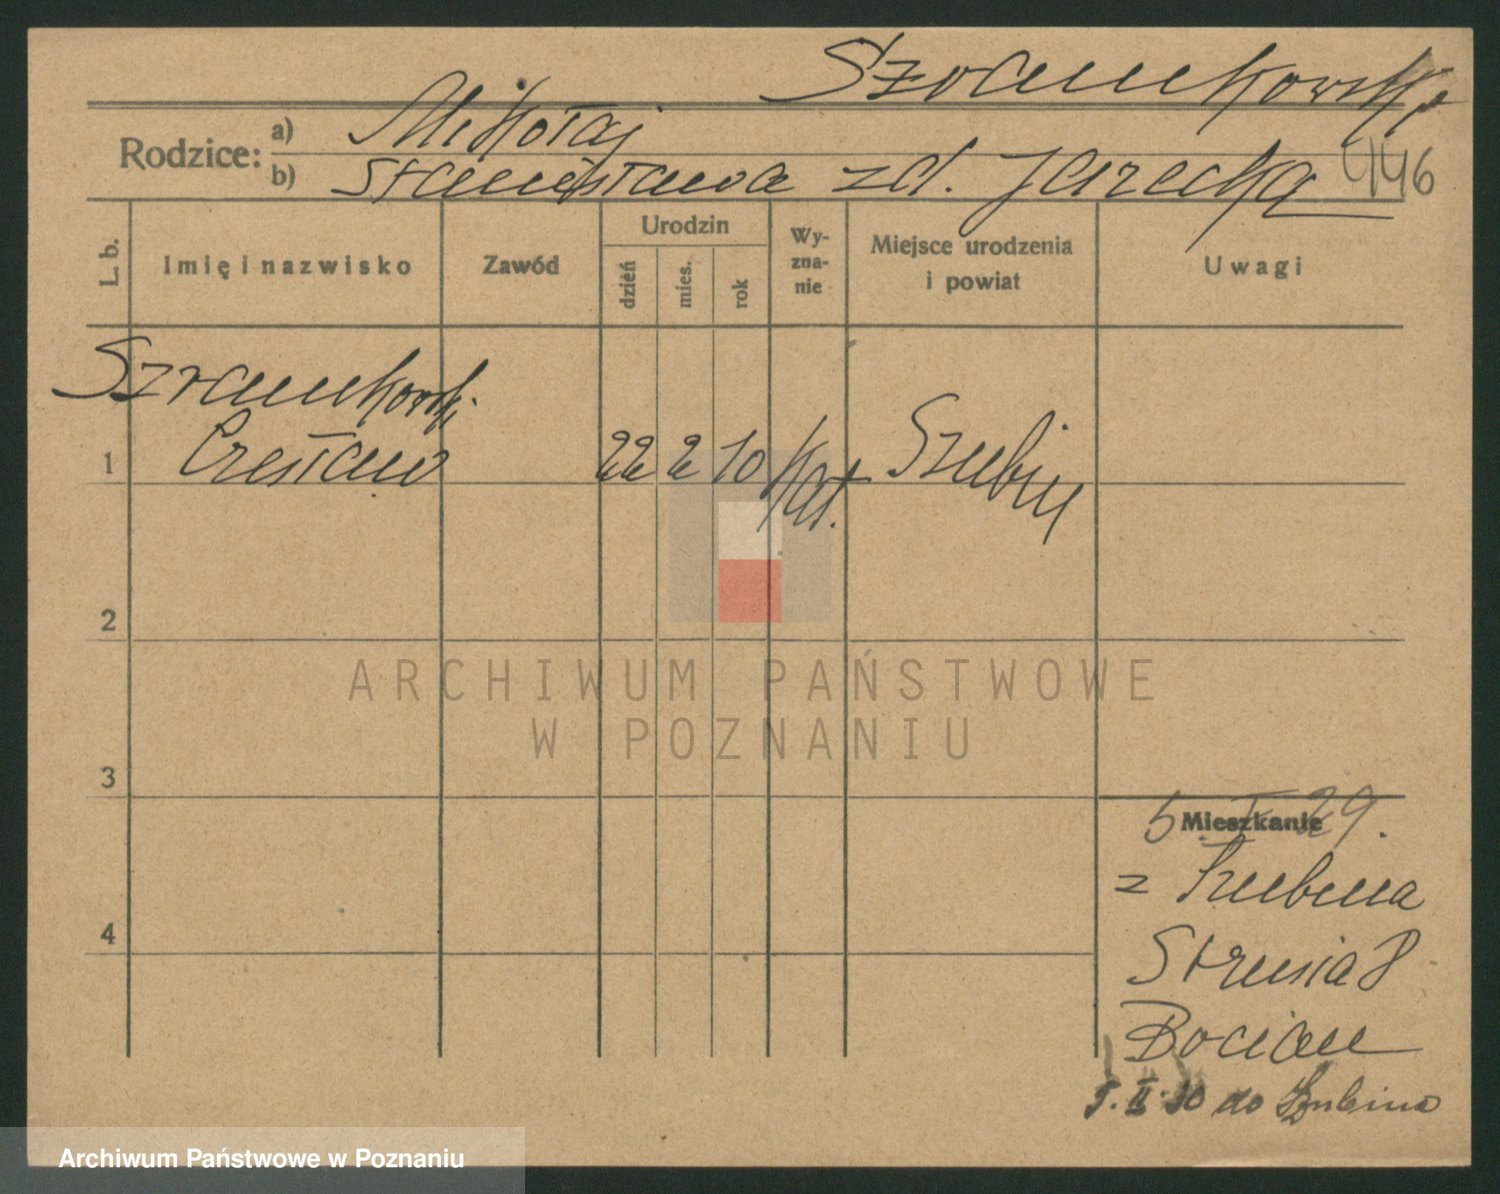 Szramkowski
Rodzice:
a) Mikołaj
b) Stanisława zd. Jarecka
446
L. b.
Imię i nazwisko
Zawód
Urodzin
dzień
mies.
rok
Wy-
zna-
nie
Miejsce urodzenia
i powiat
Uwagi
Szramkowski
1 Czesław 22 2 10 kat. Szubin
2
ARCHIWUM PAŃSTWOWE
W POZNANIU
3
Mieszkanie
5 29.
z Szubina
Strusia 8
Bocian
4
5. II. 30 do Szubina
Archiwum Państwowe w Poznaniu